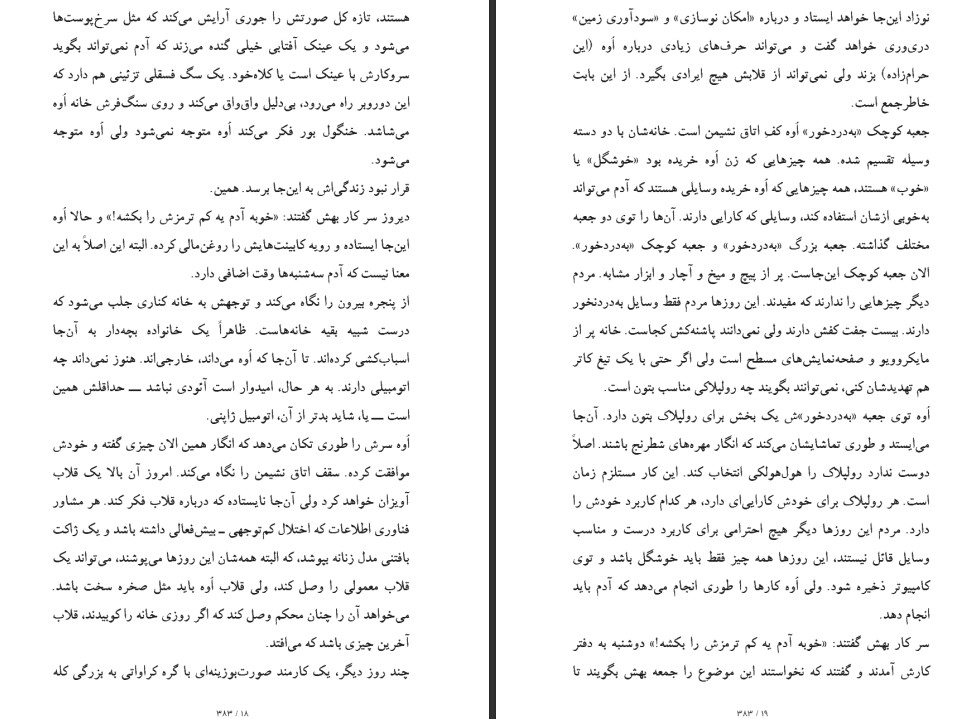 هستند، تازه کل صورتش را جوری آرایش می‌کند که مثل سرخ‌پوست‌ها
می‌شود و یک عینک آفتابی خیلی گنده می‌زند که آدم نمی‌تواند بگوید
سروکارش با عینک است یا کلاه‌خود. یک سگ فسقلی تزئینی هم دارد که
این دوروبر راه می‌رود، بی‌دلیل واق‌واق می‌کند و روی سنگ‌فرش خانه اُوه
می‌شاشد. خنگول بور فکر می‌کند اُوه متوجه نمی‌شود ولی اُوه متوجه
می‌شود.
قرار نبود زندگی‌اش به این‌جا برسد. همین.
دیروز سر کار بهش گفتند: «خوبه آدم یه کم ترمزش را بکشه!» و حالا اُوه
این‌جا ایستاده و رویه کابینت‌هایش را روغن‌مالی کرده. البته این اصلاً به این
معنا نیست که آدم سه‌شنبه‌ها وقت اضافی دارد.
از پنجره بیرون را نگاه می‌کند و توجهش به خانه کناری جلب می‌شود که
درست شبیه بقیه خانه‌هاست. ظاهراً یک خانواده بچه‌دار به آن‌جا
اسباب‌کشی کرده‌اند. تا آن‌جا که اُوه می‌داند، خارجی‌اند. هنوز نمی‌داند چه
اتومبیلی دارند. به هر حال، امیدوار است آئودی نباشد ــ حداقلش همین
است ــ یا، شاید بدتر از آن، اتومبیل ژاپنی.
اُوه سرش را طوری تکان می‌دهد که انگار همین الان چیزی گفته و خودش
موافقت کرده. سقف اتاق نشیمن را نگاه می‌کند. امروز آن بالا یک قلاب
آویزان خواهد کرد ولی آن‌جا نایستاده که درباره قلاب فکر کند. هر مشاور
فناوری اطلاعات که اختلال کم‌توجهی ـ بیش‌فعالی داشته باشد و یک ژاکت
بافتنی مدل زنانه بپوشد، که البته همه‌شان این روزها می‌پوشند، می‌تواند یک
قلاب معمولی را وصل کند، ولی قلاب اُوه باید مثل صخره سخت باشد.
می‌خواهد آن را چنان محکم وصل کند که اگر روزی خانه را کوبیدند، قلاب
آخرین چیزی باشد که می‌افتد.
چند روز دیگر، یک کارمند صورت‌بوزینه‌ای با گره کراواتی به بزرگی کله
۱۸ / ۳۸۳
نوزاد این‌جا خواهد ایستاد و درباره «امکان نوسازی» و «سودآوری زمین»
دری‌وری خواهد گفت و می‌تواند حرف‌های زیادی درباره اُوه (این
حرام‌زاده) بزند ولی نمی‌تواند از قلابش هیچ ایرادی بگیرد. از این بابت
خاطرجمع است.
جعبه کوچک «به‌دردخور» اُوه کفِ اتاق نشیمن است. خانه‌شان با دو دسته
وسیله تقسیم شده. همه چیزهایی که زن اُوه خریده بود «خوشگل» یا
«خوب» هستند، همه چیزهایی که اُوه خریده وسایلی هستند که آدم می‌تواند
به‌خوبی ازشان استفاده کند، وسایلی که کارایی دارند. آن‌ها را توی دو جعبه
مختلف گذاشته. جعبه بزرگ «به‌دردخور» و جعبه کوچک «به‌دردخور».
الان جعبه کوچک این‌جاست. پر از پیچ و میخ و آچار و ابزار مشابه. مردم
دیگر چیزهایی را ندارند که مفیدند. این روزها مردم فقط وسایل به‌دردنخور
دارند. بیست جفت کفش دارند ولی نمی‌دانند پاشنه‌کش کجاست. خانه پر از
مایکروویو و صفحه‌نمایش‌های مسطح است ولی اگر حتی با یک تیغ کاتر
هم تهدیدشان کنی، نمی‌توانند بگویند چه رولپلاکی مناسب بتون است.
اُوه توی جعبه «به‌دردخور»ش یک بخش برای رولپلاک بتون دارد. آن‌جا
می‌ایستد و طوری تماشایشان می‌کند که انگار مهره‌های شطرنج باشند. اصلاً
دوست ندارد رولپلاک را هول‌هولکی انتخاب کند. این کار مستلزم زمان
است. هر رولپلاک برای خودش کارایی‌ای دارد، هر کدام کاربرد خودش را
دارد. مردم این روزها دیگر هیچ احترامی برای کاربرد درست و مناسب
وسایل قائل نیستند، این روزها همه چیز فقط باید خوشگل باشد و توی
کامپیوتر ذخیره شود. ولی اُوه کارها را طوری انجام می‌دهد که آدم باید
انجام دهد.
سر کار بهش گفتند: «خوبه آدم یه کم ترمزش را بکشه!» دوشنبه به دفتر
کارش آمدند و گفتند که نخواستند این موضوع را جمعه بهش بگویند تا
۱۹ / ۳۸۳